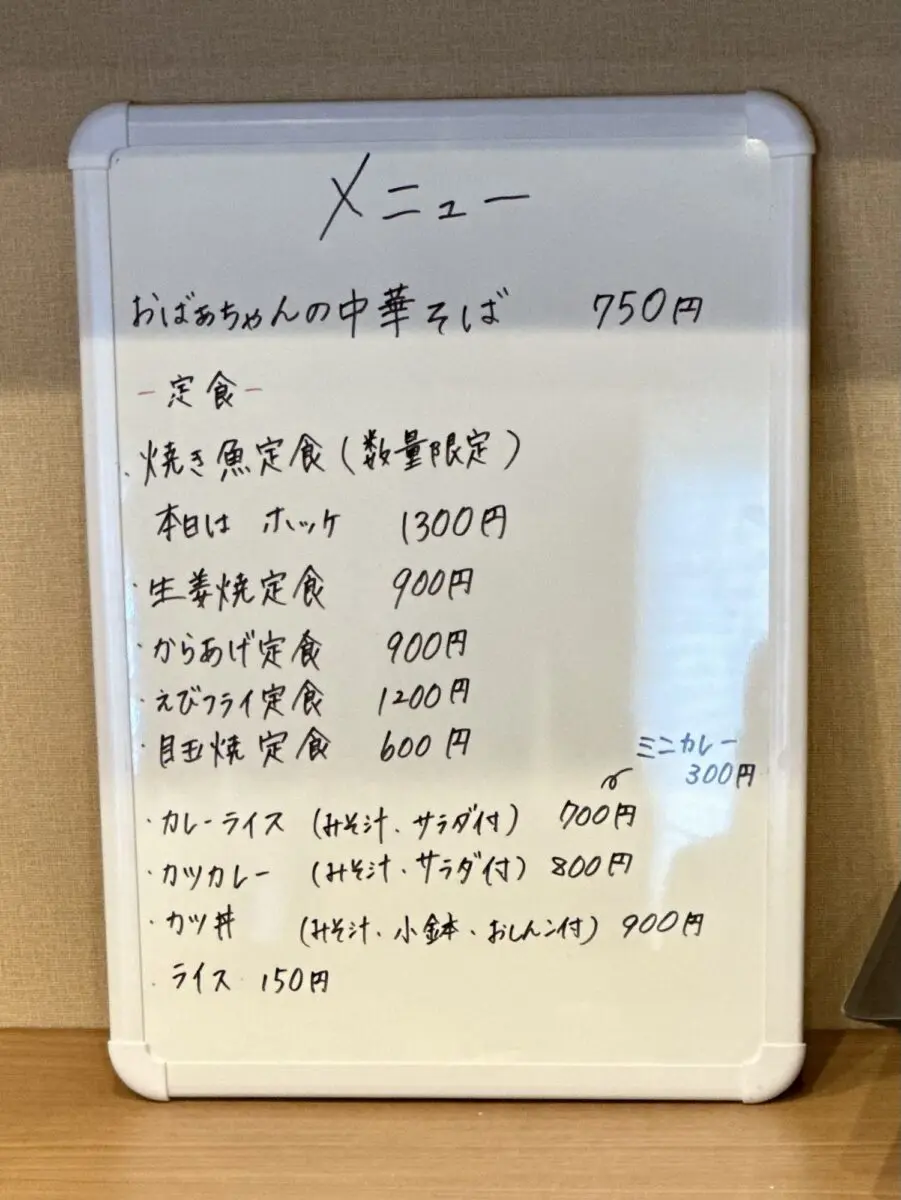 メニュー
おばぁちゃんの中華そば 750円
-定食-
・焼き魚定食(数量限定)
本日は ホッケ 1300円
・生姜焼定食 900円
・からあげ定食 900円
・えびフライ定食 1200円
・目玉焼定食 600円
ミニカレー
300円
・カレーライス (みそ汁、サラダ付) 700円
・カツカレー (みそ汁・サラダ付) 800円
・カツ丼 (みそ汁、小鉢・おしんこ付) 900円
・ライス 150円